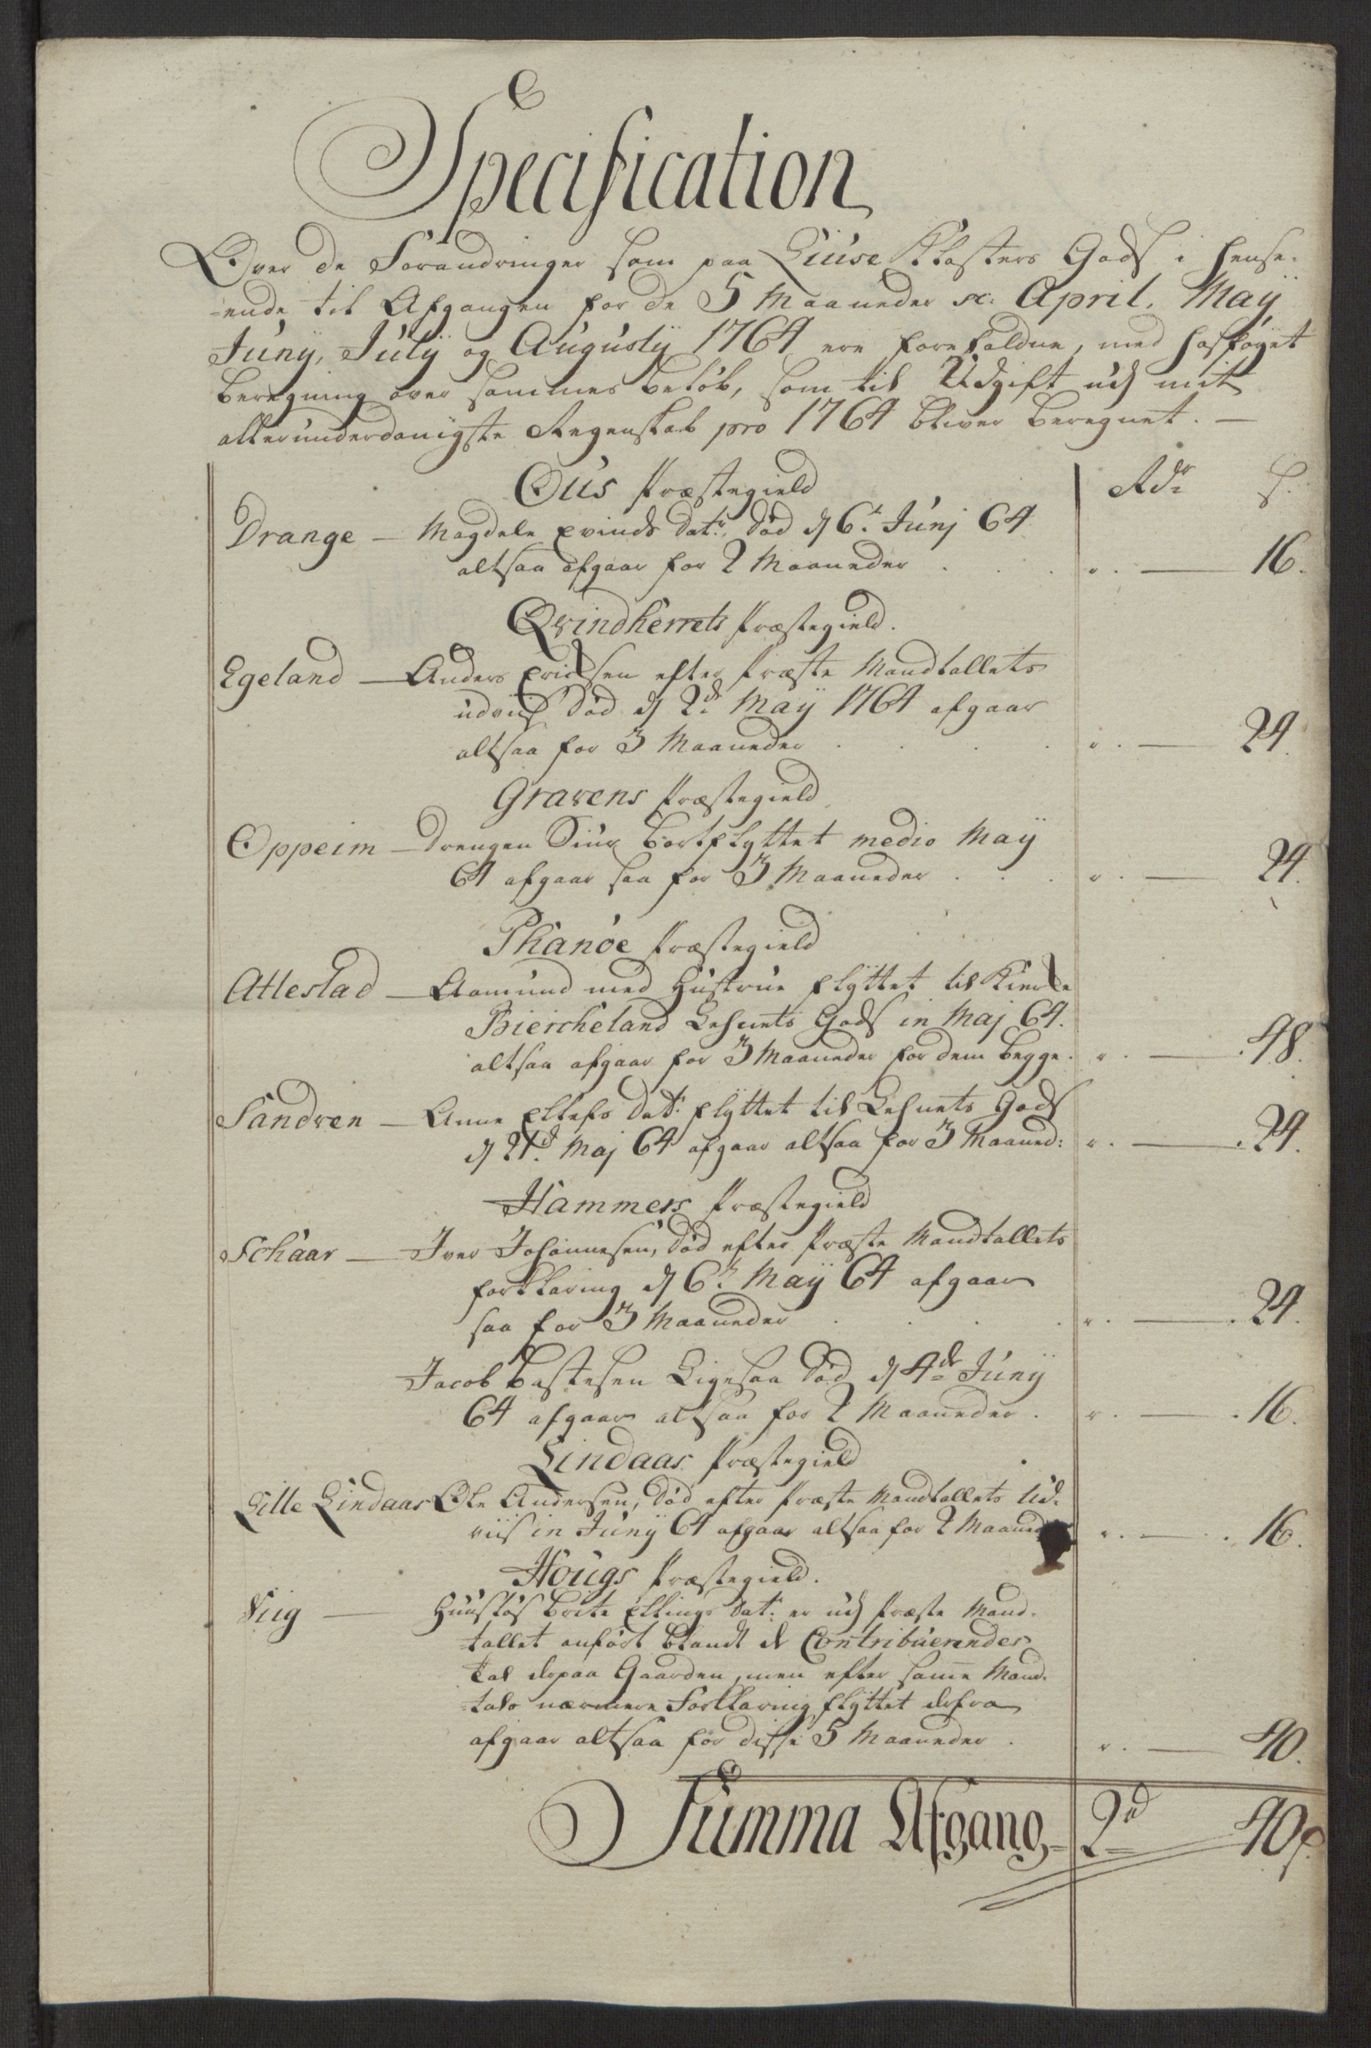 Specification
Over de Forandringer som paa Liuse Klosters Gods i hense-
ende til Afgangen for de 5 Maaneder sc: April, Maÿ
Junÿ, Julÿ og Augustÿ 1764 ere forefaldne, med hosføyet
beregning over sammes beløb, som til Udgift udj mit
allerunderdanigste Regenskab pro 1764 bliver beregnet. —
Ous Præstegield Rdr s.
Drange — Magdele Evinds Datr. død d 6t Junj 64.
altsaa afgaar for 2 Maaneder . . . " . — 16.
Qvindherrets Præstegield.
Egeland — Anders Ericksen efter Præste Mandtallets
udviis død d 2de Maÿ 1764 afgaar
altsaa for 3 Maaneder . . . " . — 24.
Gravens Præstegield
Oppeim — Drengen Siur bortflyttet medio Maÿ
64 afgaar saa for 3 Maaneder . . . " . — 24.
Phanøe Præstegield
Atlestad — Aamund med Hustrue flyttet til
Biercheland Lehnets Gods in Maj 64.
altsaa afgaar for 3 Maaneder for dem begge. " . — 48.
Sandven — Anne Ellefs Datr flyttet til Lehnets Gods
d 21d Maj 64 afgaar altsaa for 3 Maaned: " . — 24.
Hammers Præstegield
Schaar — Iver Johannesen, død efter Præste Mandtallets
forklaring d 6t Maÿ 64 afgaar
saa for 3 Maaneder . . . " . — 24.
Jacob Bastesen Ligesaa død d 4de Junÿ
64 afgaar altsaa for 2 Maaneder . " . — 16.
Lindaas Præstegield
Lille Lindaas Ole Andersen, død efter Præste Mandtallets Ud-
viis in Junÿ 64 afgaar altsaa for 2 Maaneder " . — 16.
Hougs Præstegield.
Viig — Huusløs Brite Ellings Datr er udj Præste Mand-
tallet anført blandt de Contribuerendes
tal derpaa Gaarden, men efter samme Mand-
tals nærmere Forklaring flyttet derfra
afgaar altsaa for disse 5 Maaneder . " . — 40.
Summa Afgang 2d 40s.